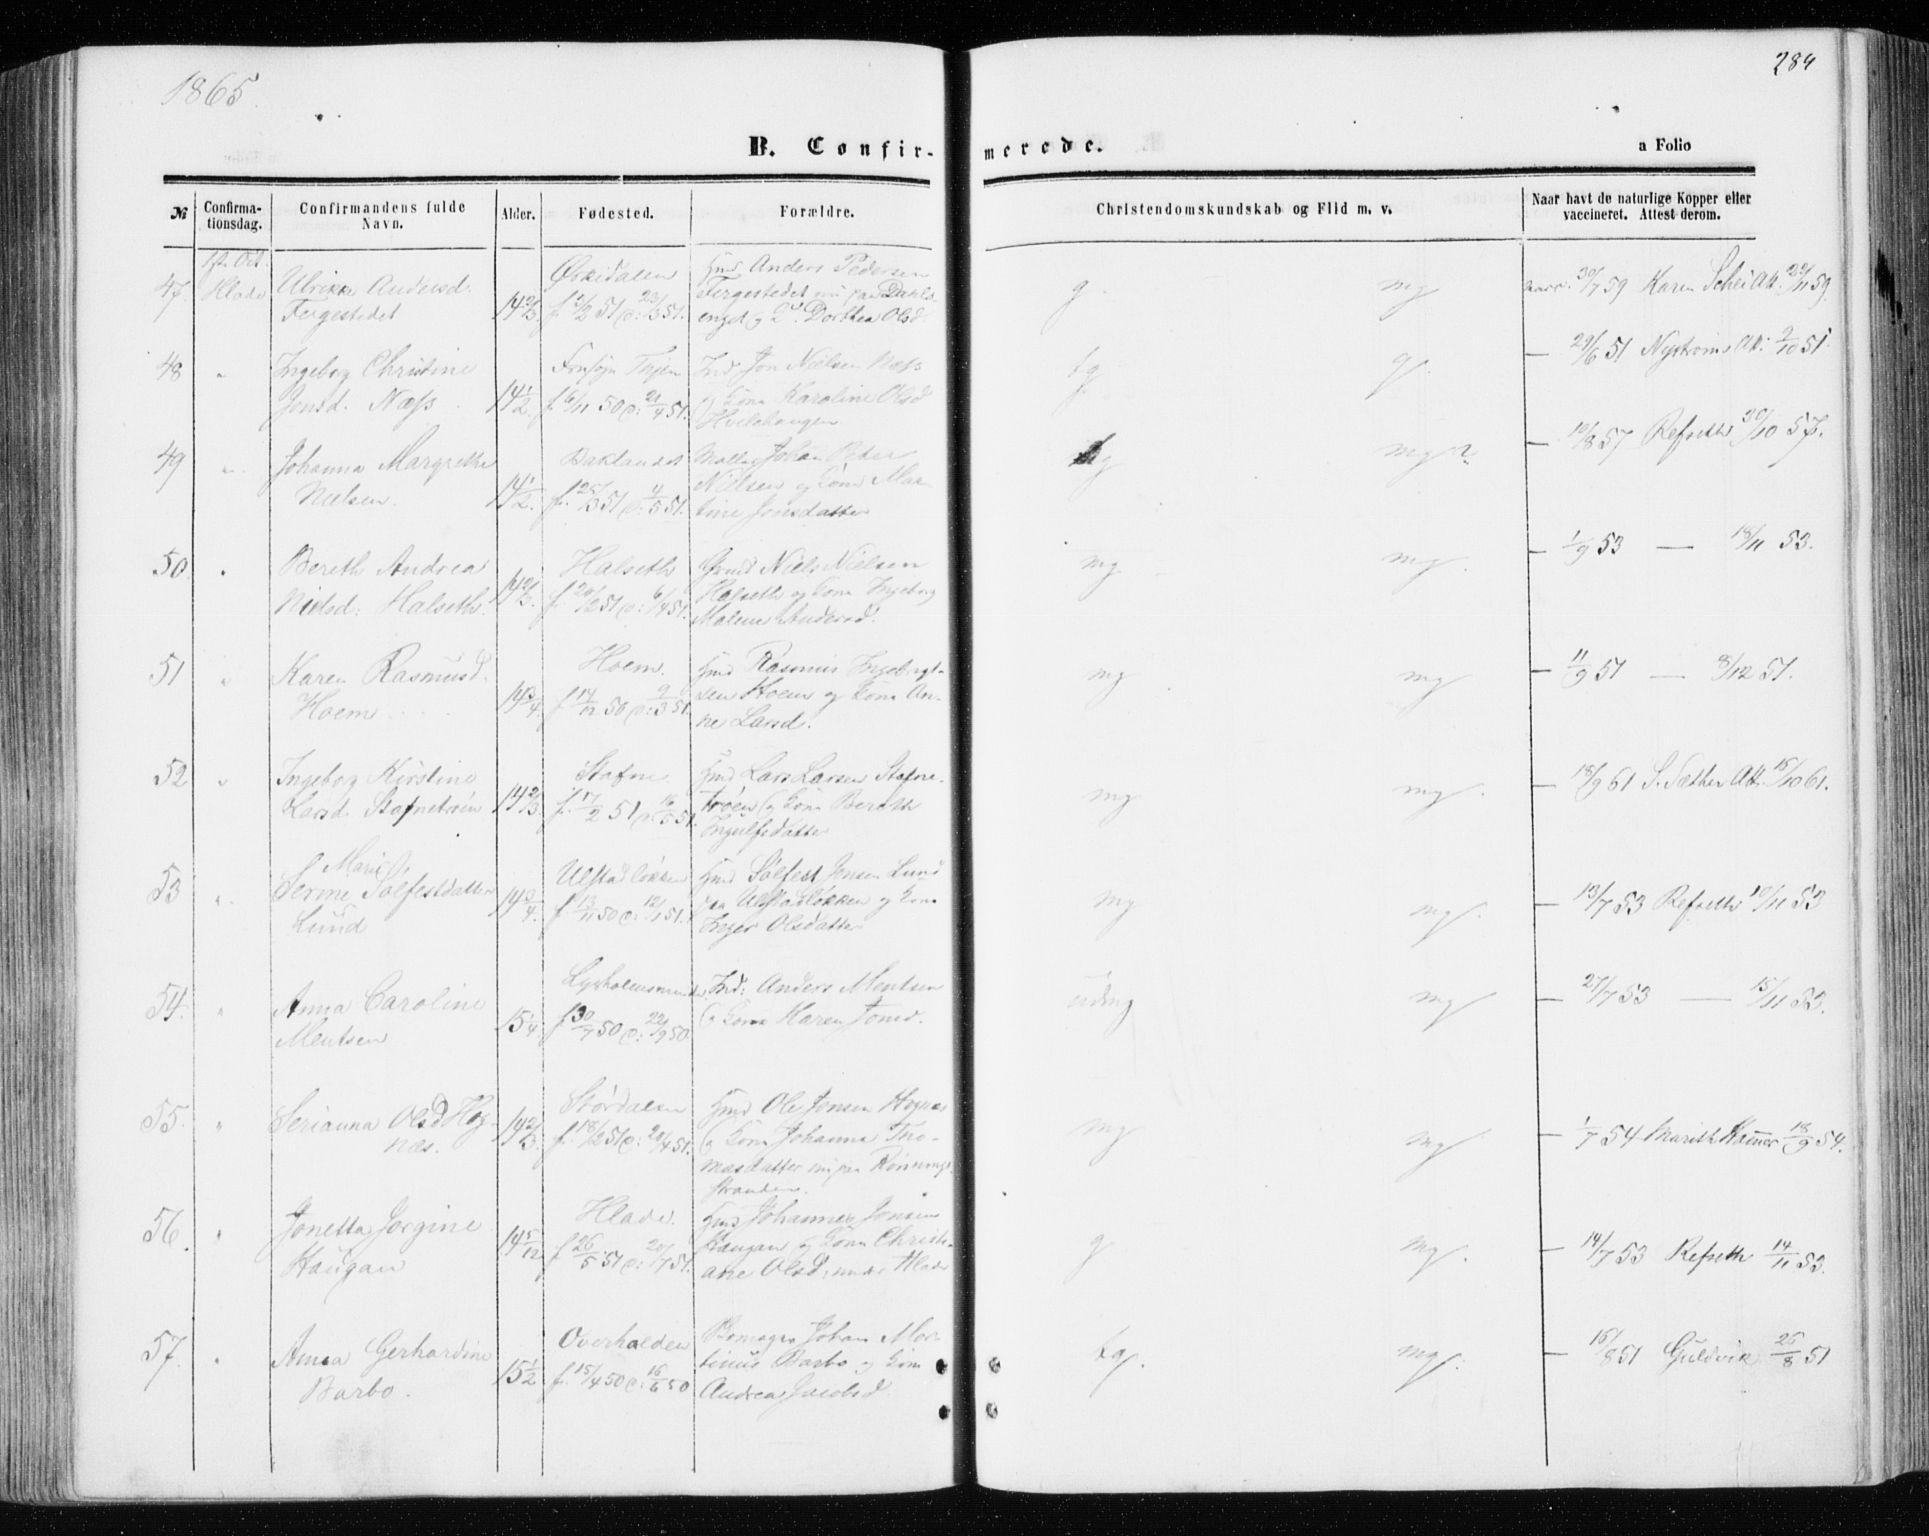 1865.
284
B. Confir-
merede.
a Folio
№
Confirma-
tionsdag.
Confirmandens fulde
Navn.
Alder.
Fødested.
Forældre.
Christendomskundskab og Flid m. v.
Naar havt de naturlige Kopper eller
vaccineret. Attest derom.
47. Hlade Ulrikke Andersd.
Fergestedet
14 2/3
Ørkedalen
f. 5/2 51 d: 23/3 51.
Hmd Anders Pedersen
Fergestedet nu paa Dahls-
enget og Dorthea Olsd.
g. mg
vacc. 30/7 59 Karen Schei Att. 29/11 59.
48 " Ingeborg Christine
Jonsd. Næss.
14 1/2
f. 6/11 50 d: 21/4 51.
Ind Jon Nielsen Næss
og Kone Karoline Olsd
tg. g.
— 29/6 51 Nystrøms Att: 2/10 51.
49 " Johanna Margrethe
Nielsen.
14 1/2.
Baklandet
f. 25/3 51 d: 4/5 51.
Johan Peder
Nielsen og Kone Mar-
tine Jonsdatter
tg mg?
— 10/8 57 Refseth 30/10 57.
50 " Bereth Andrea
Nielsd: Halseth.
14 2/3.
Halseth
f. 20/2 51 d: 6/4 51.
Gmd Niels Nielsen
Halseth og Kone Ingeborg
Malene Andersd.
mg mg.
— 1/9 53 — 18/11 53.
51 " Karen Rasmusd.
Hoem
14 3/4
Hoem.
f. 14/12 50 d: 2/3 51.
Hmd Rasmus Ingebrigt-
sen Hoem og Kone An-
ne Larsd.
mg mg
— 11/9 51 — 8/12 51.
52 " Ingeborg Kirstine
Larsd. Stafnetrøen
14 2/3
Stafne.
f. 17/2 51
Hmd Lars Larsen Stafne-
trøen og Kone Bereth
Ingulfsdatter
mg mg.
— 18/9 61 S. Sæther Att. 15/10 61.
53 " Marie
Serine Solfestdatter
Lund
14 3/4.
Ulstadløkken
f. 13/11 50 d: 12/1 51.
Hmd Solfest Jensen Lund
paa Ulstadløkken og Kone
Inger Olsdatter
mg mg.
— 13/7 53 Refseth 10/11 53
54. " Anna Caroline
Mentsen
15 1/4.
f. 30/7 50 d: 22/9 50
Ind: Anders Mentsen
og Kone Karen Jonsd.
udmg mg
— 27/7 53 — 15/11 53.
55. " Serianna Olsd Hog-
næs.
14 2/3.
Størdalen
f. 18/2 51 d: 20/4 51.
Hmd Ole Jonsen Hognæs
og Kone Johanna Tho-
masdatter nu paa Rønnings-
stranden.
mg mg
— 1/7 54 Marith Hamer 18/9 54.
56. " Jonetta Jørgine
Haugan
14 5/12
Hlade.
f. 26/5 51 d: 20/7 51.
Hmd Johannes Jonsen
Haugan og Kone Christi-
ane Olsd: under Hlade
g mg.
— 14/7 53 Refseth 14/11 53.
57. " Anna Gerhardine
Barbo.
15 1/2
Overhalden
f. 15/4 50 d: 16/6 50
Skomager Johan Mar-
tinus Barbo og Kone
Andrea Jacobsd.
tg. mg.
— 16/8 51 Guldvik 26/8 51